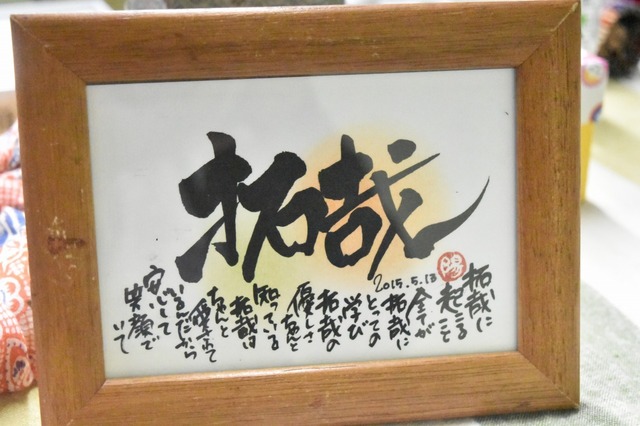 拓哉
拓哉に
起こること
全てが
拓哉に
とっての
学び
拓哉の
優しさ
ちゃんと
知ってる
拓哉は
ちゃんと
愛されて
いるんだから
安心して
笑顔で
いて
2015.5.13
陽